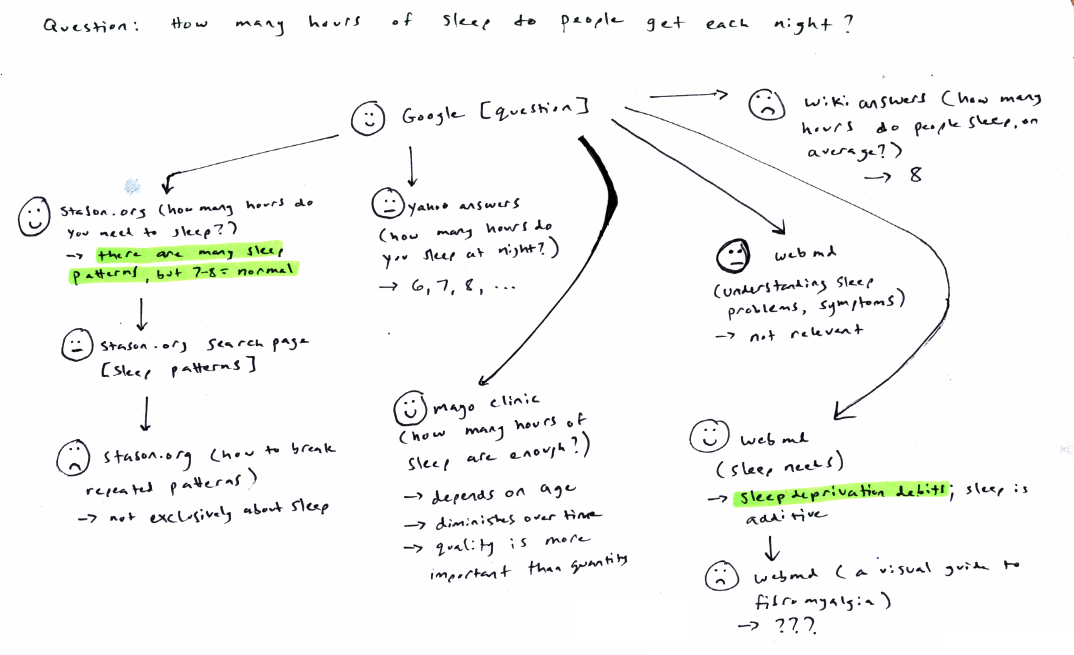 Question: How many hours of sleep do people get each night?
Google [question]
wiki answers (how many
hours do people sleep, on
average?)
→ 8
stason.org (how many hours do
you need to sleep?)
→ there are many sleep
patterns, but 7-8 = normal
yahoo answers
(how many hours do
you sleep at night?)
→ 6, 7, 8, ...
webmd
(understanding sleep
problems, symptoms)
→ not relevant
stason.org search page
[sleep patterns]
mayo clinic
(how many hours of
sleep are enough?)
→ depends on age
→ diminishes over time
→ quality is more
important than quantity
stason.org (how to break
repeated patterns)
→ not exclusively about sleep
webmd
(sleep needs)
→ sleep deprivation debits; sleep is
additive
webmd (a visual guide to
fibromyalgia)
→ ???